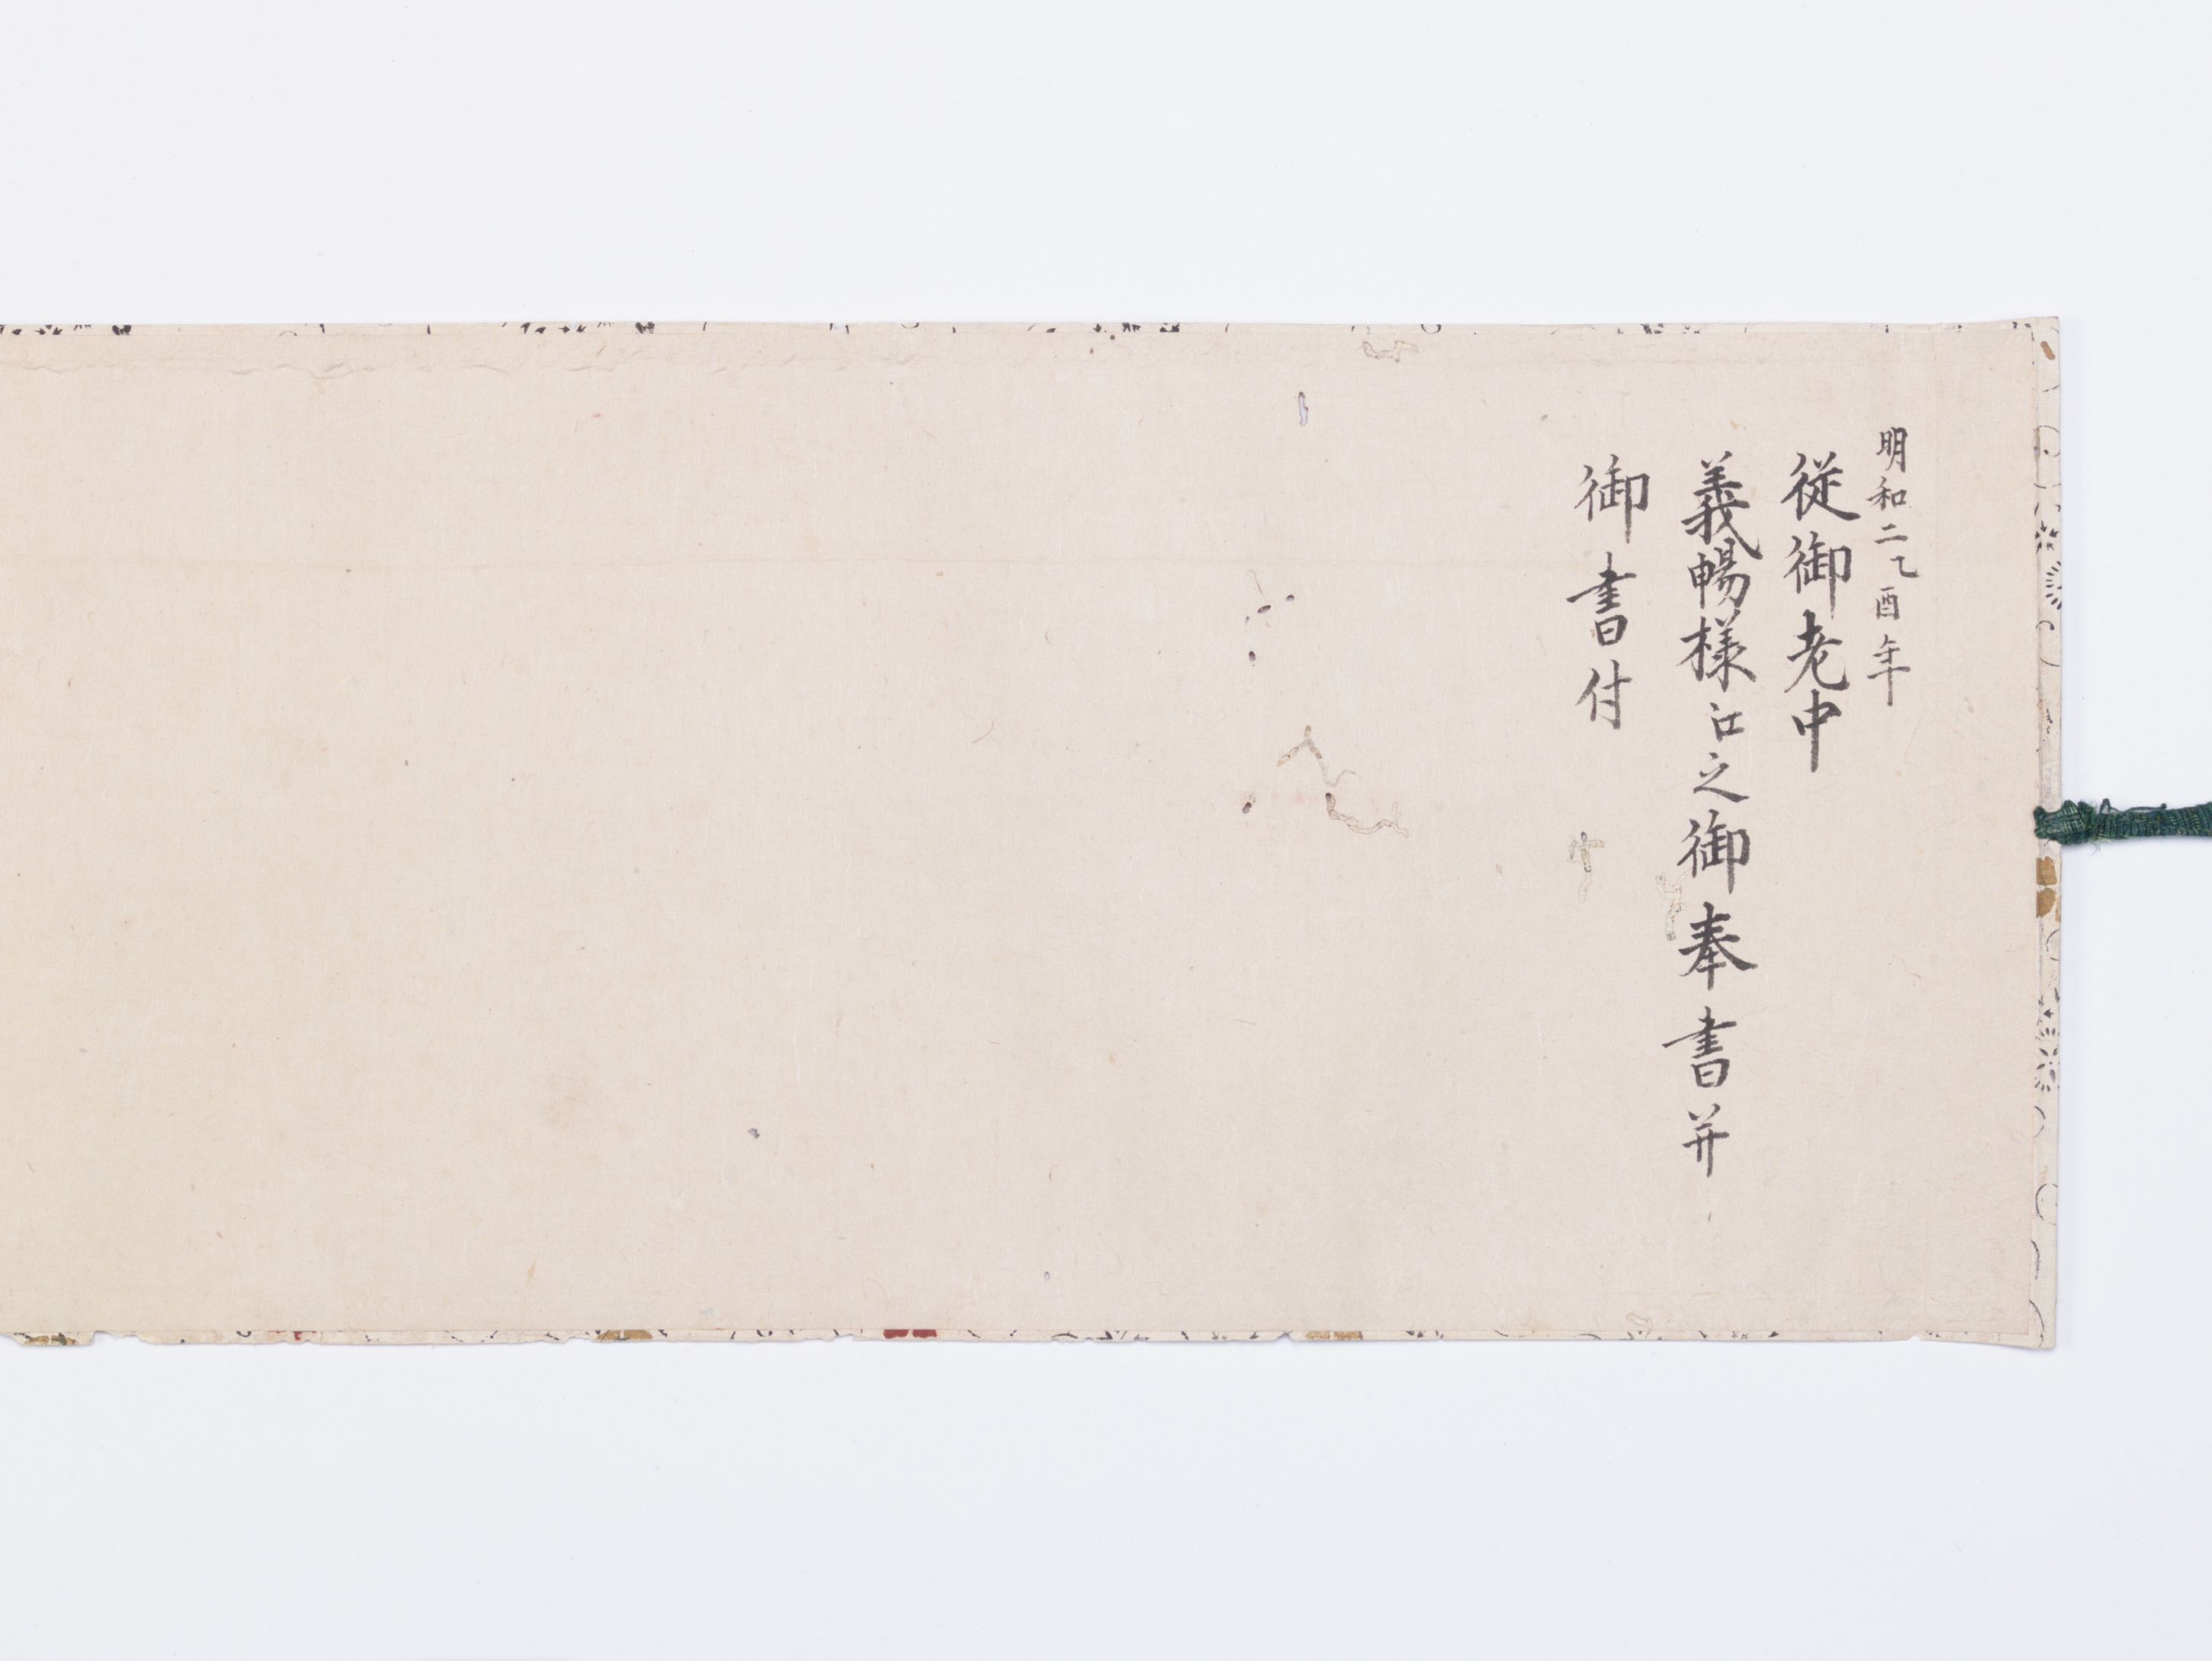 明和二乙酉年
従御老中
義暢様江之御奉書并
御書付